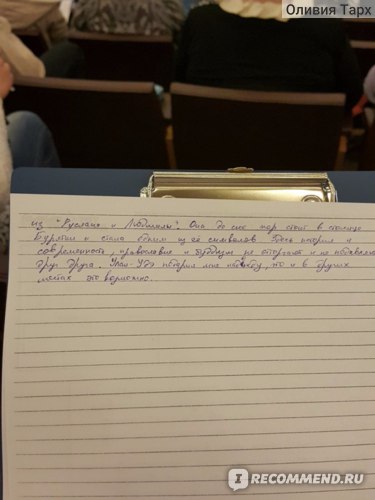 Оливия Тарх
из "Руслана и Людмилы". Она до сих пор стоит в столице
Бурятии и стала одним из её символов. Здесь история и
современность, православие и буддизм не отторгают и не
друг друга. Улан-Удэ подарил мне надежду, что и в других
местах это возможно.
IRECOMMEND.RU